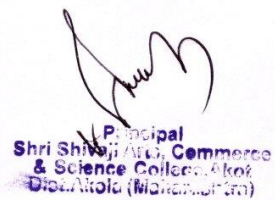 Principal
Shri Shivaji Arts, Commerce
& Science College, Akot
Dist. Akola (Maharashtra)